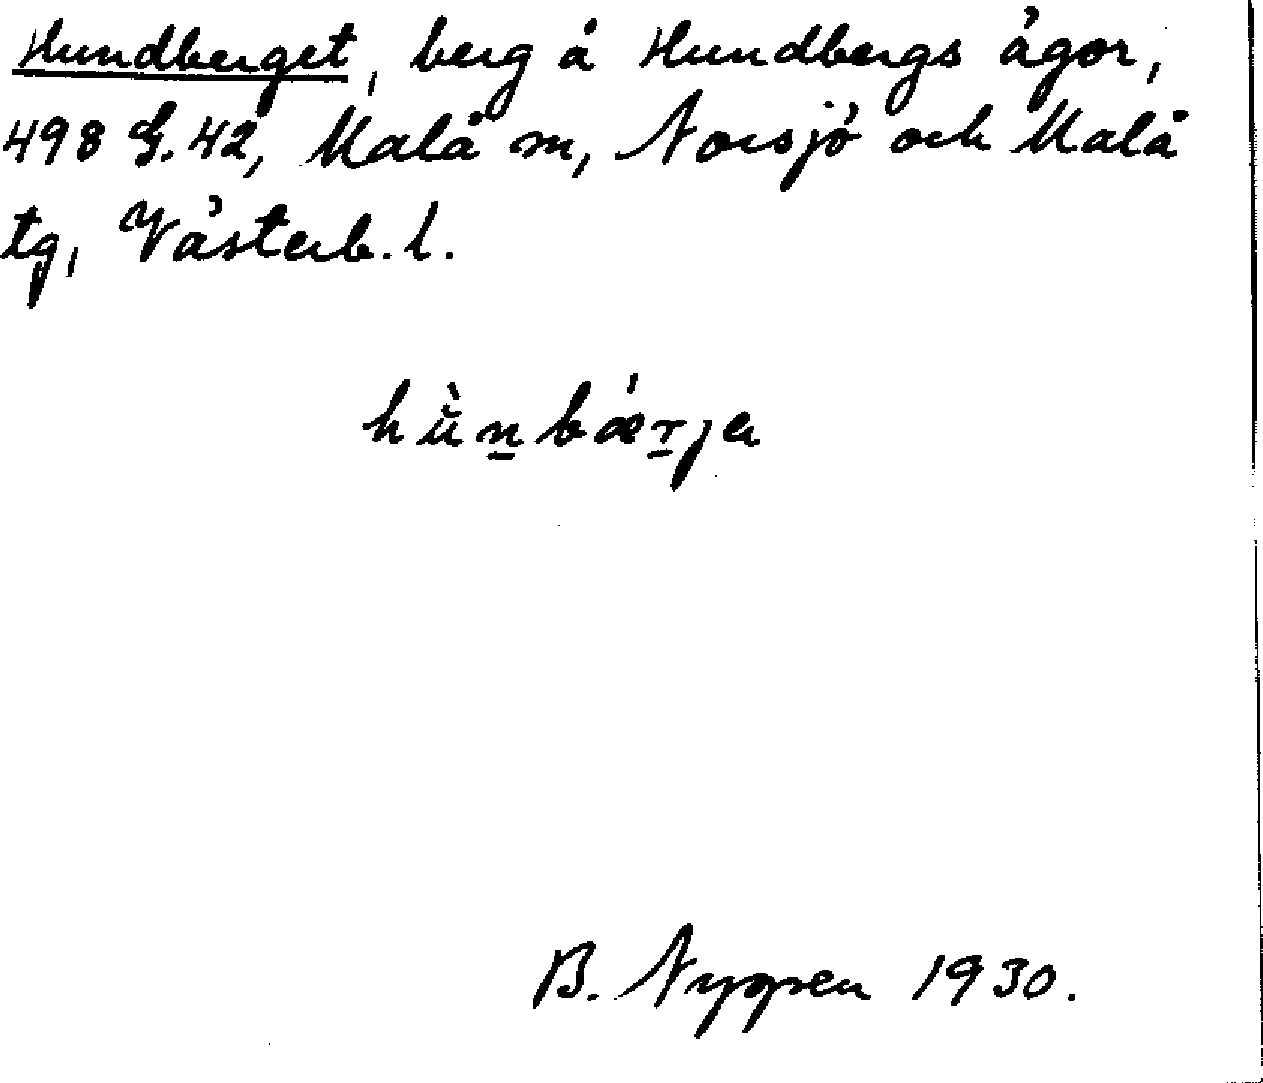 Hundberget, berg å Hundbergs ägor,
498 G. 42, Malå sn, Norsjö och Malå
tg, Västerb. l.
hù̆n̲bǽr̲ja
B. Nygren 1930.